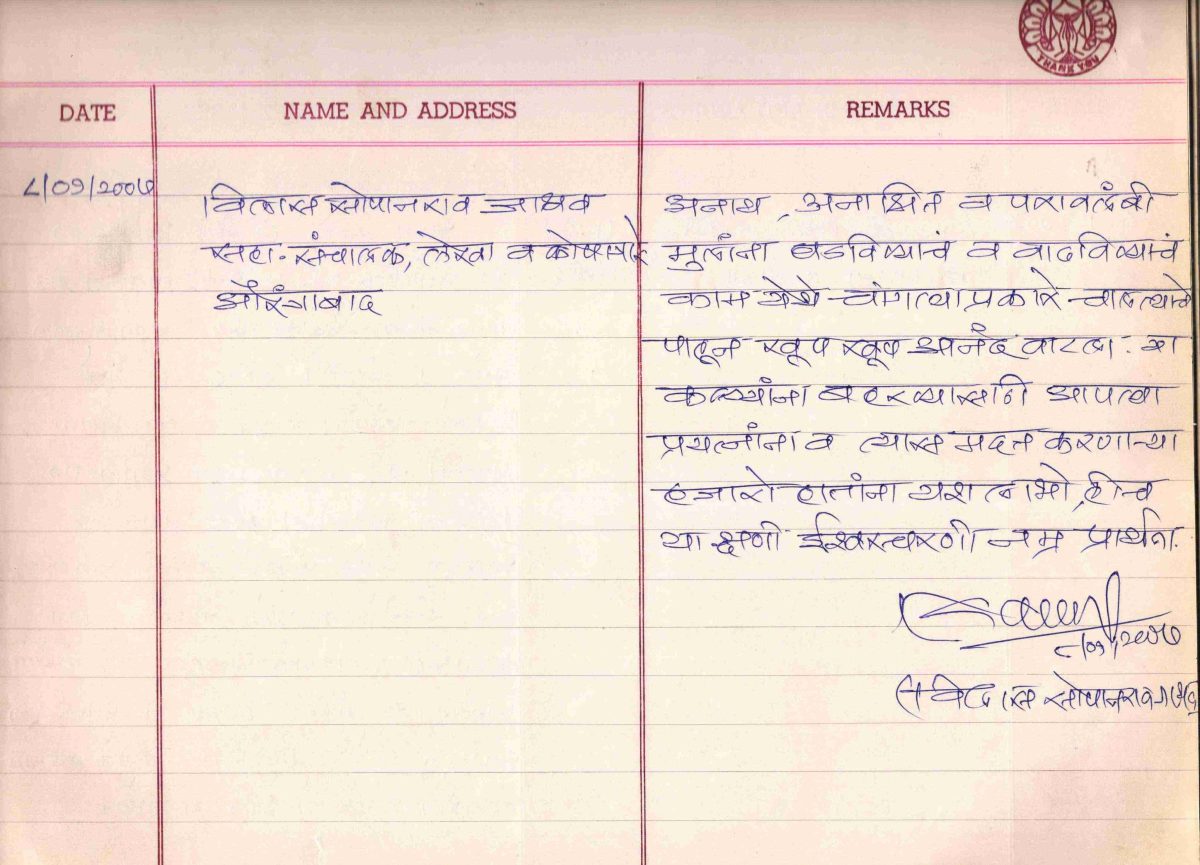 THANK YOU
DATE NAME AND ADDRESS REMARKS
८/०१/२००७
विलास सोपानराव जाधव
सहा. संचालक, लेखा व कोषागारे
औरंगाबाद
अनाथ, अनाश्रित व परावलंबी
मुलांना घडविण्याचं व वाढविण्याचं
काम येथे चांगल्याप्रकारे चालल्याचे
पाहून खूप खूप आनंद वाटला. या
कळ्यांना बहरण्यासाठी आपल्या
प्रयत्नांना व त्यास मदत करणाऱ्या
हजारो हातांना यश लाभो, हीच
या क्षणी ईश्वरचरणी नम्र प्रार्थना.
८/०१/२००७
विलास सोपानराव जाधव